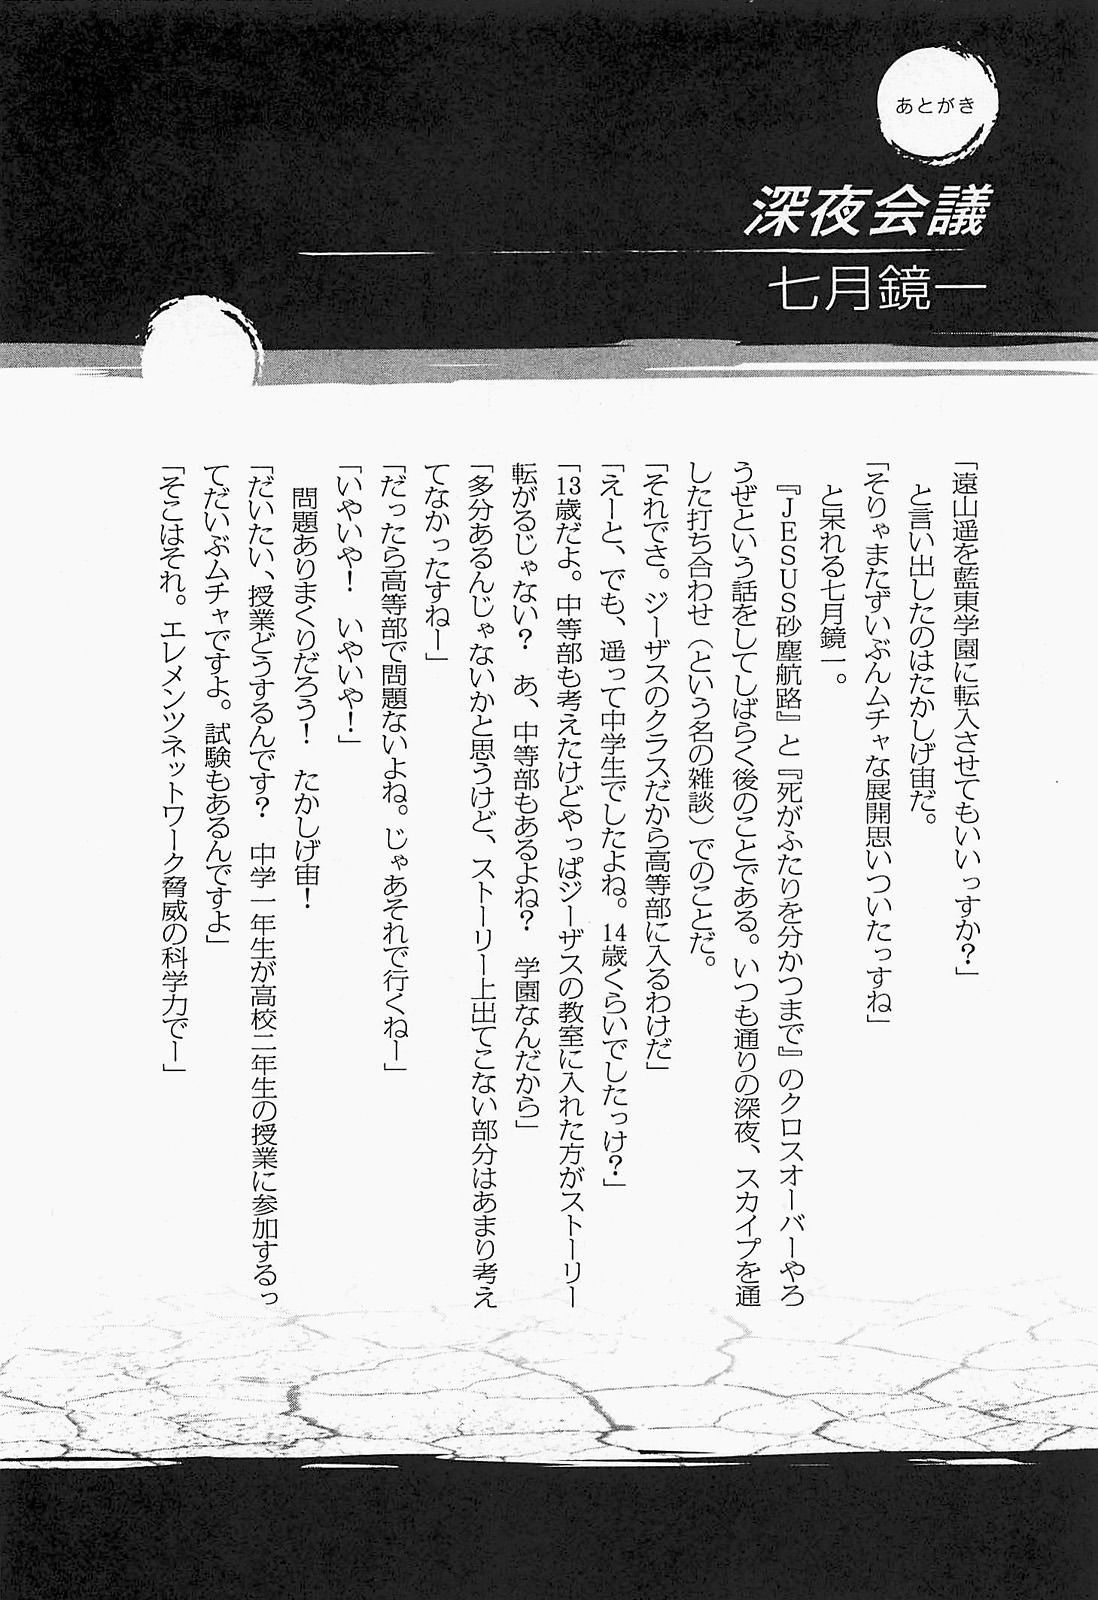 あとがき
深夜会議
七月鏡一
「遠山遥を藍東学園に転入させてもいいっすか？」
と言い出したのはたかしげ宙だ。
「そりゃまたずいぶんムチャな展開思いついたっすね」
と呆れる七月鏡一。
『JESUS砂塵航路』と『死がふたりを分かつまで』のクロスオーバーやろ
うぜという話をしてしばらく後のことである。いつも通りの深夜、スカイプを通
した打ち合わせ（という名の雑談）でのことだ。
「それでさ。ジーザスのクラスだから高等部に入るわけだ」
「えーと、でも、遥って中学生でしたよね。14歳くらいでしたっけ？」
「13歳だよ。中等部も考えたけどやっぱジーザスの教室に入れた方がストーリー
転がるじゃない？　あ、中等部もあるよね？　学園なんだから」
「多分あるんじゃないかと思うけど、ストーリー上出てこない部分はあまり考え
てなかったすねー」
「だったら高等部で問題ないよね。じゃあそれで行くねー」
「いやいや！　いやいや！」
問題ありまくりだろう！　たかしげ宙！
「だいたい、授業どうするんです？　中学一年生が高校二年生の授業に参加するっ
てだいぶムチャですよ。試験もあるんですよ」
「そこはそれ。エレメンツネットワーク脅威の科学力でー」